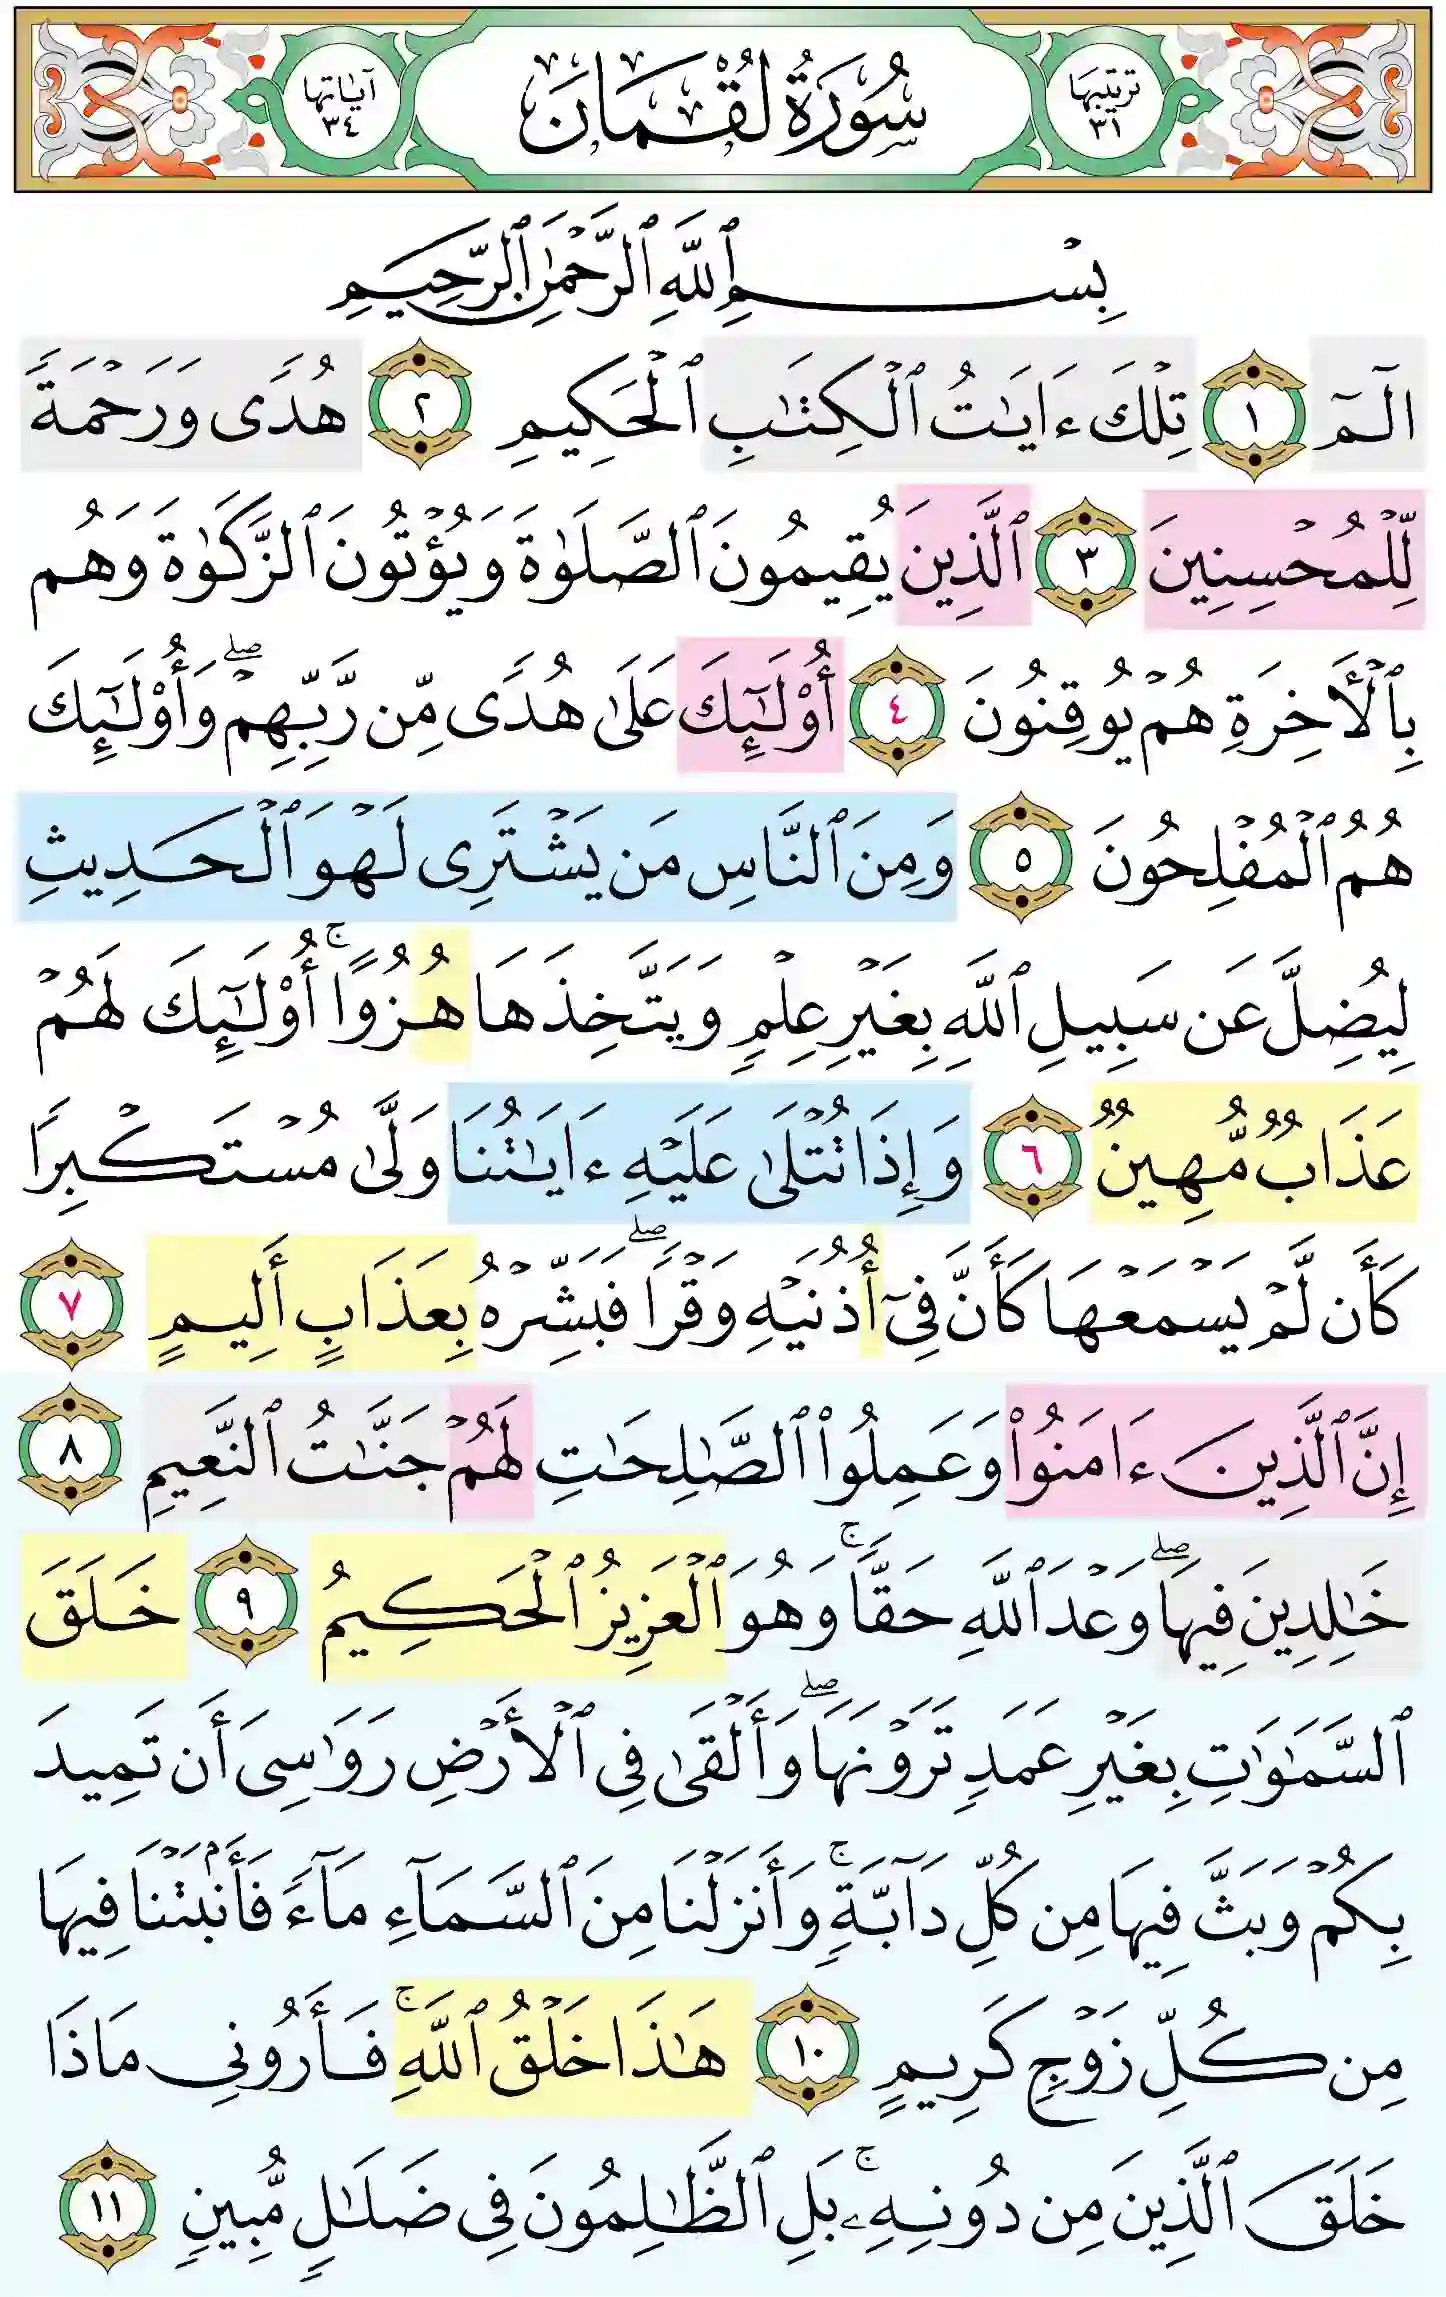 ترتيبها ٣١
سُورَةُ لُقْمَان
آياتها ٣٤
بِسْمِ ٱللَّهِ ٱلرَّحْمَٰنِ ٱلرَّحِيمِ
الٓمٓ ١ تِلْكَ ءَايَٰتُ ٱلْكِتَٰبِ ٱلْحَكِيمِ ٢ هُدًى وَرَحْمَةً
لِّلْمُحْسِنِينَ ٣ ٱلَّذِينَ يُقِيمُونَ ٱلصَّلَوٰةَ وَيُؤْتُونَ ٱلزَّكَوٰةَ وَهُم
بِٱلْأَخِرَةِ هُمْ يُوقِنُونَ ٤ أُوْلَٰٓئِكَ عَلَىٰ هُدًى مِّن رَّبِّهِمْۖ وَأُوْلَٰٓئِكَ
هُمُ ٱلْمُفْلِحُونَ ٥ وَمِنَ ٱلنَّاسِ مَن يَشْتَرِى لَهْوَ ٱلْحَدِيثِ
لِيُضِلَّ عَن سَبِيلِ ٱللَّهِ بِغَيْرِ عِلْمٍ وَيَتَّخِذَهَا هُزُوًاۚ أُوْلَٰٓئِكَ لَهُمْ
عَذَابٌ مُّهِينٌ ٦ وَإِذَا تُتْلَىٰ عَلَيْهِ ءَايَٰتُنَا وَلَّىٰ مُسْتَكْبِرًا
كَأَن لَّمْ يَسْمَعْهَا كَأَنَّ فِىٓ أُذُنَيْهِ وَقْرًاۖ فَبَشِّرْهُ بِعَذَابٍ أَلِيمٍ ٧
إِنَّ ٱلَّذِينَ ءَامَنُواْ وَعَمِلُواْ ٱلصَّٰلِحَٰتِ لَهُمْ جَنَّٰتُ ٱلنَّعِيمِ ٨
خَٰلِدِينَ فِيهَاۖ وَعْدَ ٱللَّهِ حَقًّاۚ وَهُوَ ٱلْعَزِيزُ ٱلْحَكِيمُ ٩ خَلَقَ
ٱلسَّمَٰوَٰتِ بِغَيْرِ عَمَدٍ تَرَوْنَهَاۖ وَأَلْقَىٰ فِى ٱلْأَرْضِ رَوَٰسِىَ أَن تَمِيدَ
بِكُمْ وَبَثَّ فِيهَا مِن كُلِّ دَآبَّةٍۚ وَأَنزَلْنَا مِنَ ٱلسَّمَآءِ مَآءً فَأَنۢبَتْنَا فِيهَا
مِن كُلِّ زَوْجٍ كَرِيمٍ ١٠ هَٰذَا خَلْقُ ٱللَّهِۚ فَأَرُونِى مَاذَا
خَلَقَ ٱلَّذِينَ مِن دُونِهِۦۚ بَلِ ٱلظَّٰلِمُونَ فِى ضَلَٰلٍ مُّبِينٍ ١١